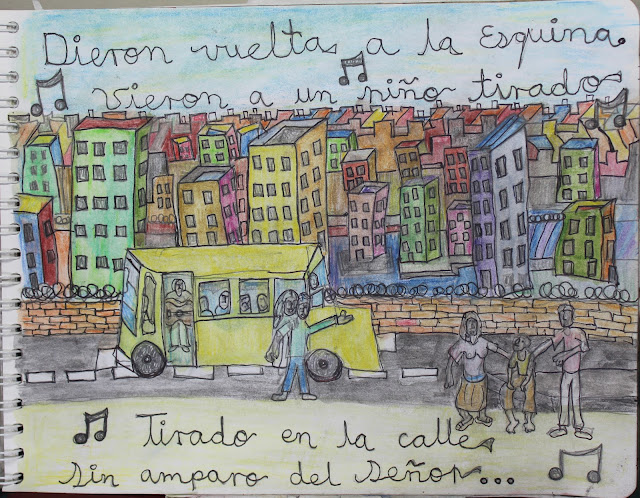 Dieron vuelta a la Esquina.
Vieron a un niño tirado
Tirado en la calle
Sin amparo del Señor...